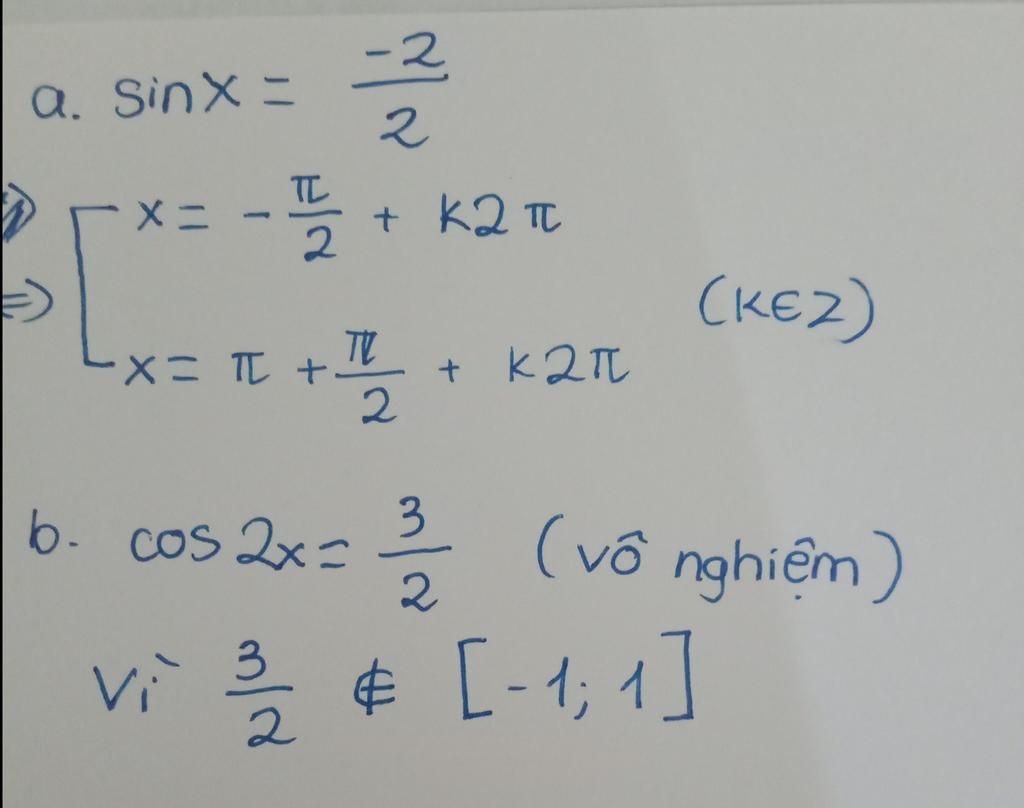 a. sin x = -2/2
⇒ [ x = -π/2 + k2π
x = π + π/2 + k2π (k∈Z)
b. cos 2x = 3/2 (vô nghiệm)
Vì 3/2 ∉ [-1; 1]